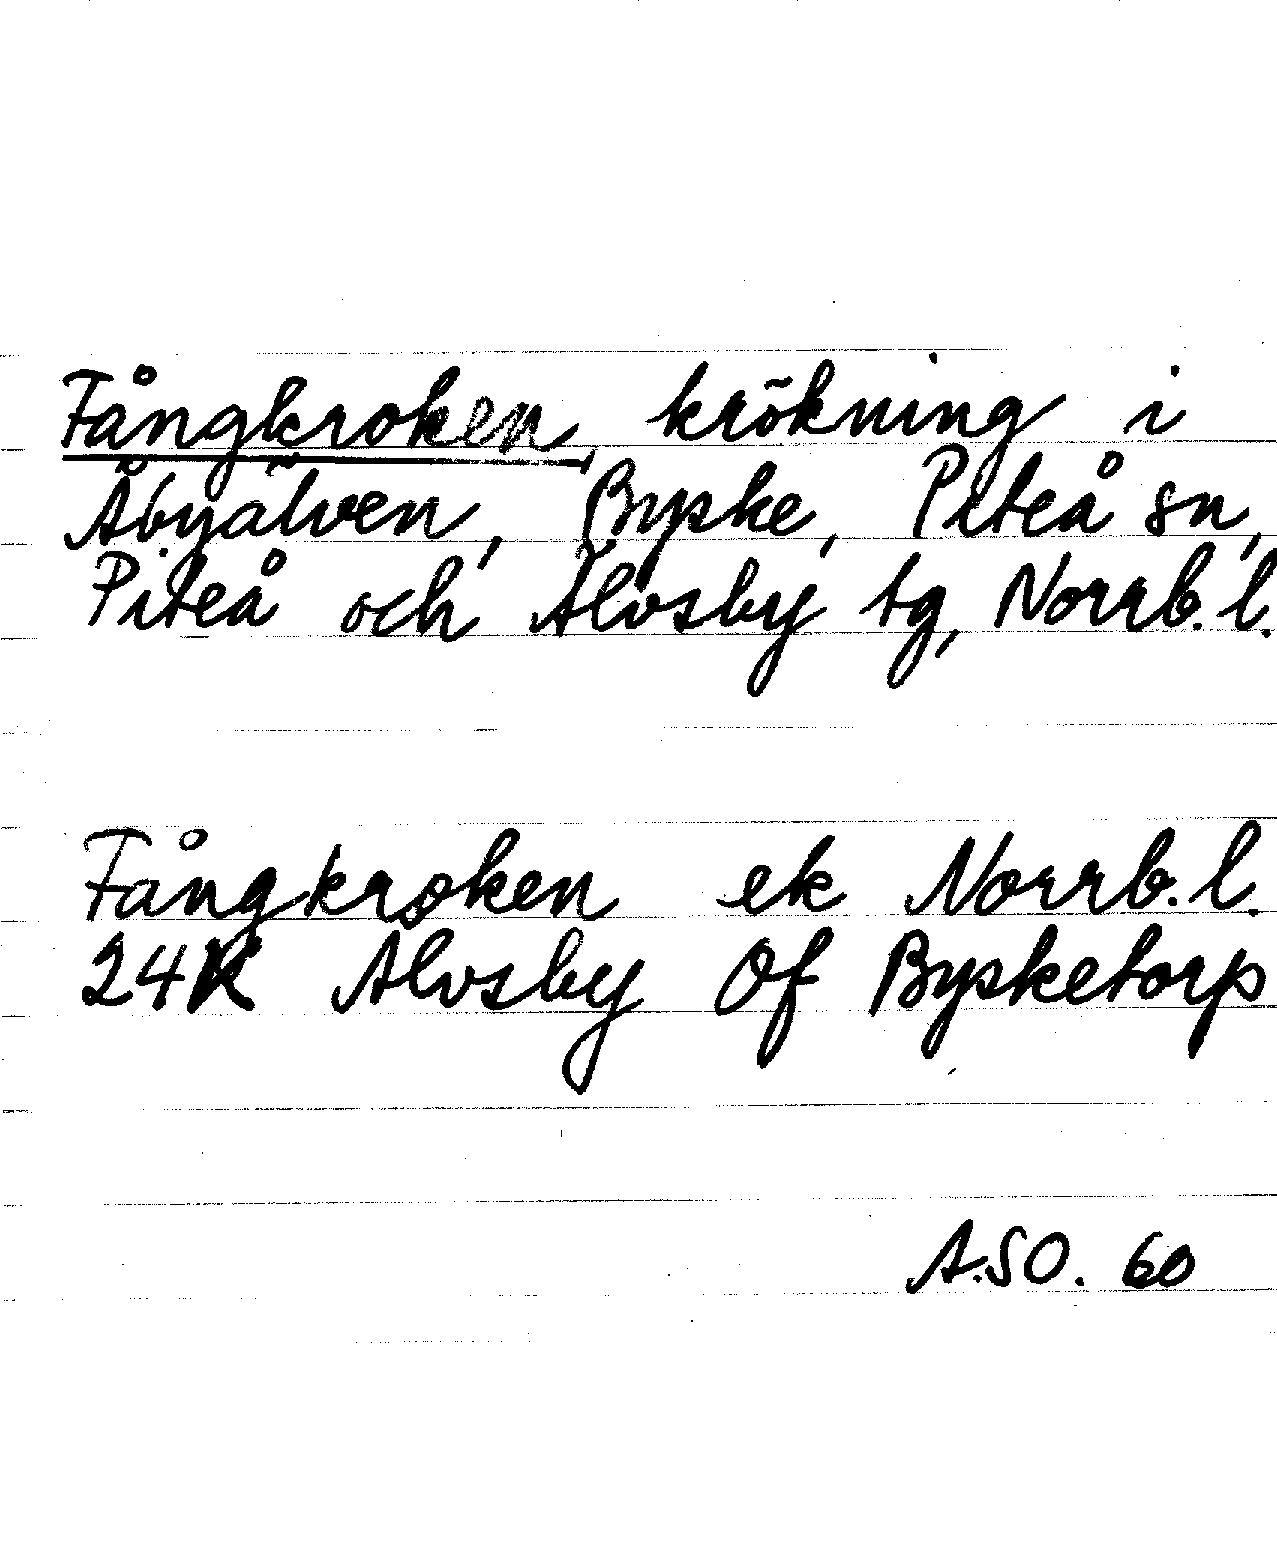 Fångkroken, krökning i
Åbyälven, Byske, Piteå sn,
Piteå och Älvsby tg, Norrb. l.
Fångkroken ek Norrb. l.
24K Älvsby Of Bysketorp
A.SO. 60